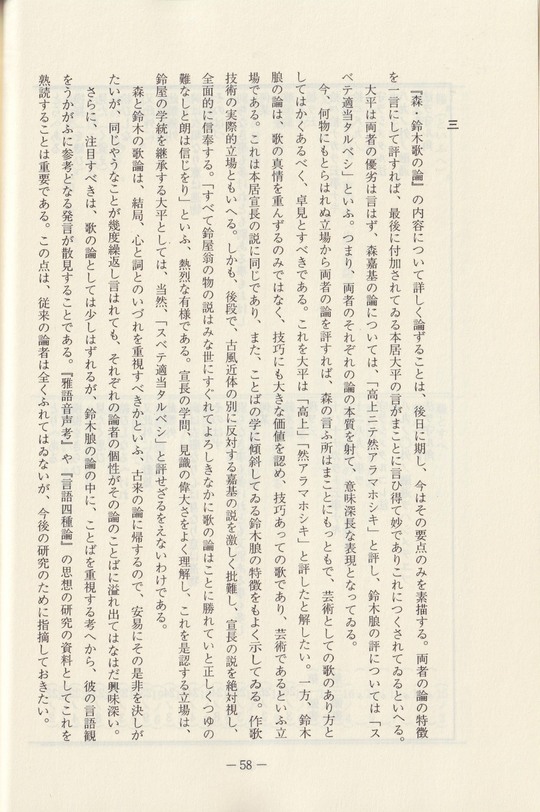 三
『森・鈴木歌の論』の内容について詳しく論ずることは、後日に期し、今はその要点のみを素描する。両者の論の特徴
を一言にして評すれば、最後に付加されてゐる本居大平の言がまことに言ひ得て妙でありこれにつくされてゐるといへる。
大平は両者の優劣は言はず、森嘉基の論については、「高上ニテ然アラマホシキ」と評し、鈴木朖の評については「ス
ベテ適当タルベシ」といふ。つまり、両者のそれぞれの論の本質を射て、意味深長な表現となってゐる。
今、何物にもとらはれぬ立場から両者の論を評すれば、森の言ふ所はまことにもっともで、芸術としての歌のあり方と
してはかくあるべく、卓見とすべきである。これを大平は「高上」「然アラマホシキ」と評したと解したい。一方、鈴木
朖の論は、歌の真情を重んずるのみではなく、技巧にも大きな価値を認め、技巧あっての歌であり、芸術であるといふ立
場である。これは本居宣長の説に同じであり、また、ことばの学に傾斜してゐる鈴木朖の特徴をもよく示してゐる。作歌
技術の実際的立場ともいへる。しかも、後段で、古風近体の別に反対する嘉基の説を激しく批難し、宣長の説を絶対視し、
全面的に信奉する。「すべて鈴屋翁の物の説はみな世にすぐれてよろしきなかに歌の論はことに勝れていと正しくつゆの
難なしと朗は信じをり」といふ、熱烈な有様である。宣長の学問、見識の偉大さをよく理解し、これを是認する立場は、
鈴屋の学統を継承する大平としては、当然、「スベテ適当タルベシ」と評せざるをえないわけである。
森と鈴木の歌論は、結局、心と詞とのいづれを重視すべきかといふ、古来の論に帰するので、安易にその是非を決しが
たいが、同じやうなことが幾度繰返し言はれても、それぞれの論者の個性がその論のことばに溢れ出てはなはだ興味深い。
さらに、注目すべきは、歌の論としては少しはずれるが、鈴木朖の論の中に、ことばを重視する考へから、彼の言語観
をうかがふに参考となる発言が散見することである。『雅語音声考』や『言語四種論』の思想の研究の資料としてこれを
熟読することは重要である。この点は、従来の論者は全くふれてはゐないが、今後の研究のために指摘しておきたい。
— 58 —